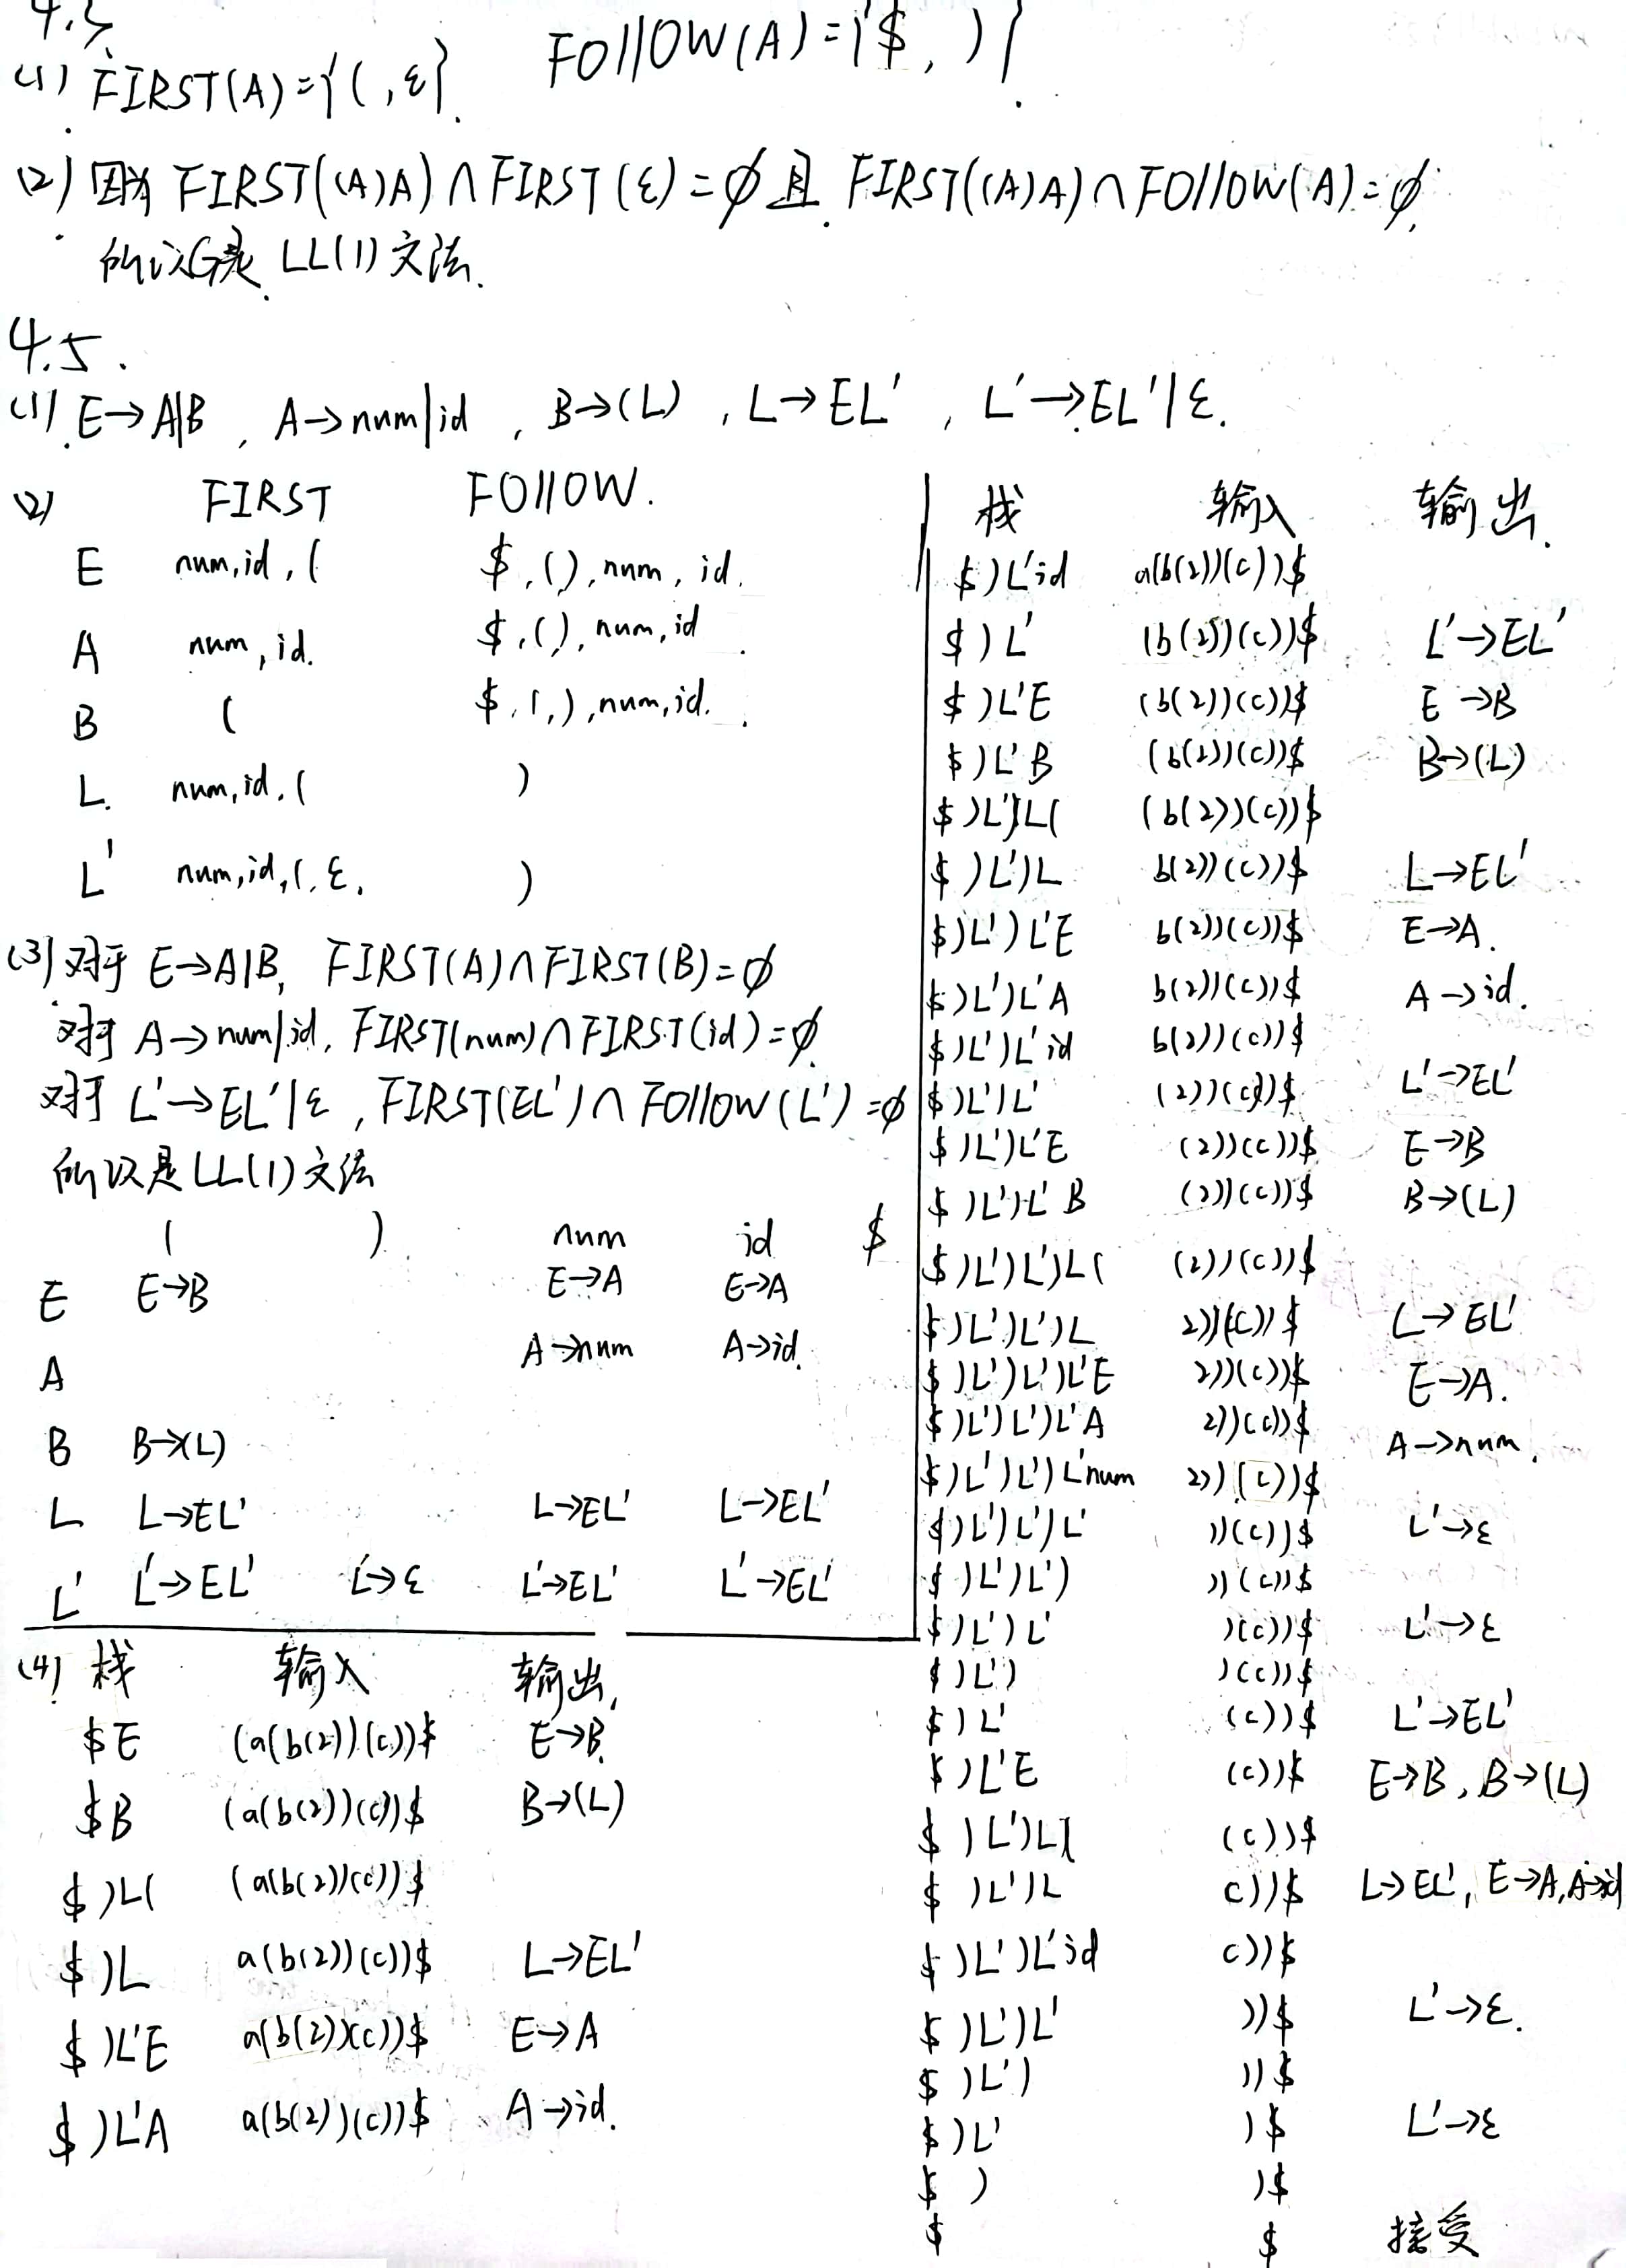 4.3
(1) FIRST(A)={(,ε}. FOllOW(A)={$, )}.
(2) 因为 FIRST((A)A)∩FIRST(ε)=∅且 FIRST((A)A)∩FOllOW(A)=∅.
所以G是 LL(1)文法.
4.5.
(1) E→A|B , A→num|id , B→(L) , L→EL' , L'→EL'|ε.
(2) FIRST FOllOW.
E num,id,( $,(),num,id.
A num,id. $,(),num,id
B ( $,(,),num,id.
L. num,id,( )
L' num,id,(,ε. )
(3) 对于 E→A|B, FIRST(A)∩FIRST(B)=∅
对于 A→num|id, FIRST(num)∩FIRST(id)=∅.
对于 L'→EL'|ε , FIRST(EL')∩FOllOW(L')=∅
所以是LL(1)文法
( ) num id $
E E→B E→A E→A
A A→num A→id.
B B→(L)
L L→EL' L→EL' L→EL'
L' L'→EL' L'→ε L'→EL' L'→EL'
(4) 栈 输入 输出.
$E (a(b(2))(c))$ E→B.
$B (a(b(2))(c))$ B→(L)
$)L( (a(b(2))(c))$
$)L a(b(2))(c))$ L→EL'
$)L'E a(b(2))(c))$ E→A
$)L'A a(b(2))(c))$ A→id.
栈 输入 输出.
$)L'id a(b(2))(c))$
$)L' (b(2))(c))$ L'→EL'
$)L'E (b(2))(c))$ E→B
$)L'B (b(2))(c))$ B→(L)
$)L')L( (b(2))(c))$
$)L')L b(2))(c))$ L→EL'
$)L')L'E b(2))(c))$ E→A.
$)L')L'A b(2))(c))$ A→id.
$)L')L'id b(2))(c))$
$)L')L' (2))(c))$ L'→EL'
$)L')L'E (2))(c))$ E→B
$)L')L'B (2))(c))$ B→(L)
$)L')L')L( (2))(c))$
$)L')L')L 2))(c))$ L→EL'
$)L')L')L'E 2))(c))$ E→A.
$)L')L')L'A 2))(c))$ A→num.
$)L')L')L'num 2))(c))$
$)L')L')L' ))(c))$ L'→ε
$)L')L') ))(c))$
$)L')L' )(c))$ L'→ε
$)L') )(c))$
$)L' (c))$ L'→EL'
$)L'E (c))$ E→B, B→(L)
$)L')L( (c))$
$)L')L c))$ L→EL', E→A, A→id
$)L')L'id c))$
$)L')L' ))$ L'→ε.
$)L') ))$
$)L' )$ L'→ε
$) )$
$ $ 接受